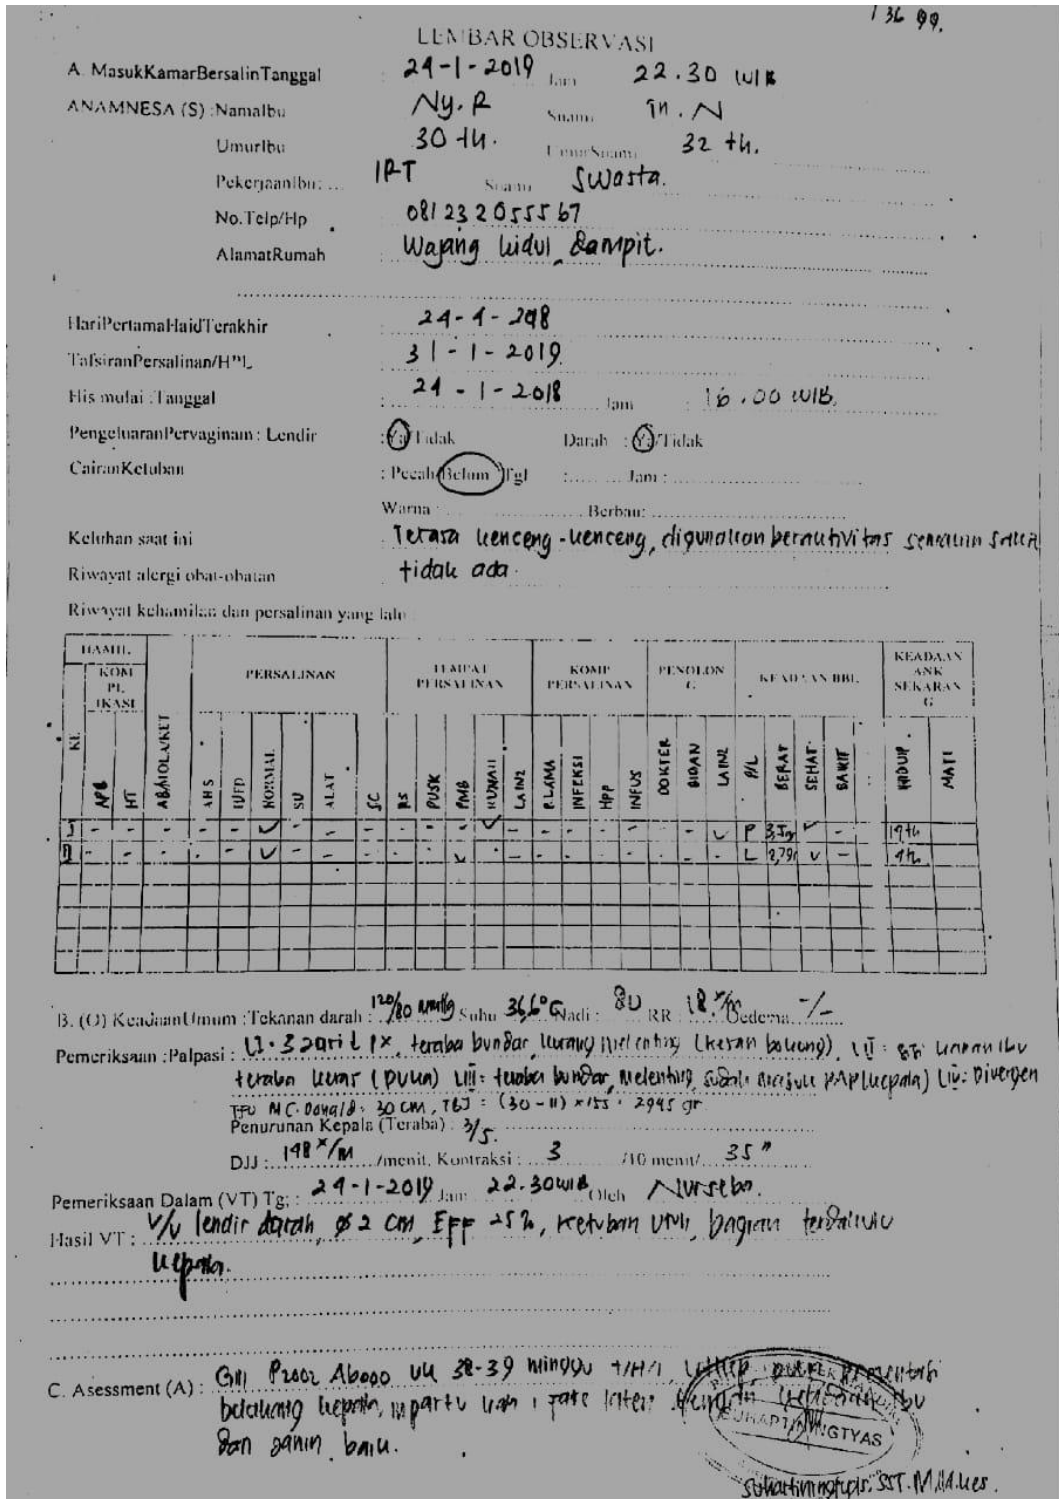 1 36 99.
LEMBAR OBSERVASI
A. MasukKamarBersalinTanggal : 24-1-2019 Jam 22.30 WIB
ANAMNESA (S) :NamaIbu Ny. R Suami Tn. N
UmurIbu 30 th. UmurSuami 32 th.
PekerjaanIbu: ... IRT Suami Swasta.
No.Telp/Hp : 081232055567
AlamatRumah : Wajang kidul, Dampit.
HariPertamaHaidTerakhir : 24-4-2018
TafsiranPersalinan/HPL : 31-1-2019
His mulai :Tanggal : 24-1-2018 Jam : 16.00 WIB.
PengeluaranPervaginam : Lendir : Ya/Tidak Darah : Ya/Tidak
CairanKetuban : Pecah/Belum Tgl : Jam :
Warna : Berbau:
Keluhan saat ini Terasa kenceng-kenceng, digunakan beraktivitas semakin sakit
Riwayat alergi obat-obatan tidak ada.
Riwayat kehamilan dan persalinan yang lalu
HAMIL PERSALINAN TEMPAT PERSALINAN KOMP PERSALINAN PENOLONG KEADAAN BBL KEADAAN ANK SEKARANG
KOMPLIKASI
KE APB HT AB/MOLA/KET AHS IUFD NORMAL SU ALAT SC RS PUSK PMB RUMAH LAIN2 P.LAMA INFEKSI HPP INFUS DOKTER BIDAN LAIN2 P/L BERAT SEHAT SAKIT HIDUP MATI
I - - - - - ✓ - - - - - - ✓ - - - - - - - ✓ P ✓ - 19th
II - - - - - ✓ - - - - - ✓ - - - - - - - - - L ✓ -
B. (O) KeadaanUmum :Tekanan darah : 120/80 mmHg Suhu 36,6°C Nadi : 80 RR : 18 x/m Oedema -/-
Pemeriksaan :Palpasi : LI. 3 jari ↓ Px, teraba bundar, kurang melenting (kesan bokong), LII : kanan ibu
teraba keras (puka) LIII= teraba bundar, melenting, sudah masuk PAP (kepala) LIV: Divergen
TFU Mc. Donald: 30 cm, TBJ = (30-11) x 155 = 2945 gr
Penurunan Kepala (Teraba) : 3/5.
DJJ : 148 x/m /menit, Kontraksi : 3 /10 menit/ 35"
Pemeriksaan Dalam (VT) Tg; : 24-1-2019 Jam 22.30 WIB Oleh
Hasil VT : V/V lendir darah, Ø 2 cm, Eff 25%, ketuban utuh, bagian terdahulu
kepala.
C. Asessment (A) : GIII P2002 Ab000 UK 38-39 minggu T/H/I, Letkep, puka presentasi
belakang kepala, inpartu kala I fase laten dengan keadaan ibu
dan janin baik.
SUHARTININGTYAS
Suhartiningtyas, SST. M.M.Kes.